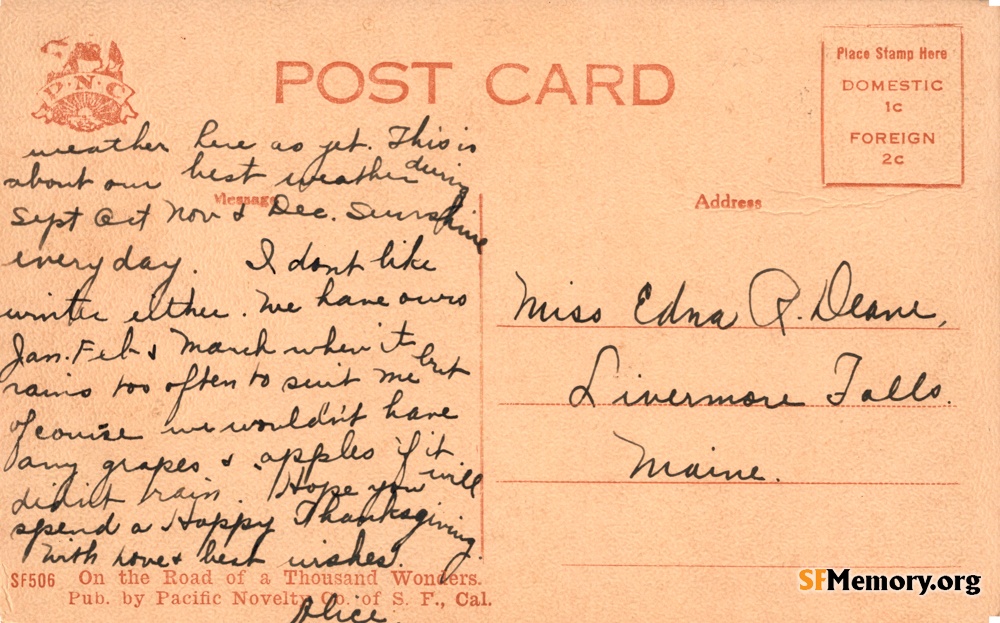 P·N·C
POST CARD
Place Stamp Here
DOMESTIC
1c
FOREIGN
2c
Message
Address
weather here as yet. This is
about our best weather during
Sept Oct Nov & Dec. Sunshine
every day. I dont like
winter either. We have ours
Jan. Feb & March when it
rains too often to suit me but
of course we wouldn't have
any grapes & apples if it
didn't rain. Hope you will
spend a Happy Thanksgiving
With love & best wishes.
Alice.
Miss Edna R. Deane,
Livermore Falls.
Maine.
SF506 On the Road of a Thousand Wonders.
Pub. by Pacific Novelty Co. of S. F., Cal.
SFMemory.org